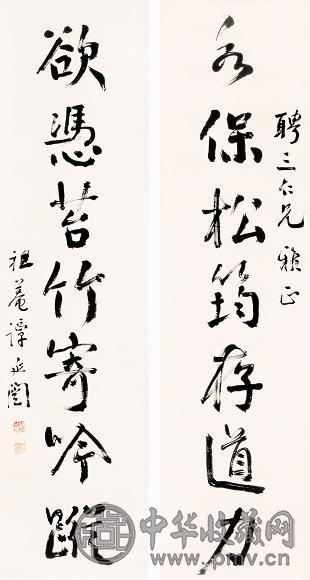 聘三仁兄雅正
永保松筠存道力
欲憑苔竹寄吟蹤
祖菴譚延闓
中华收藏网